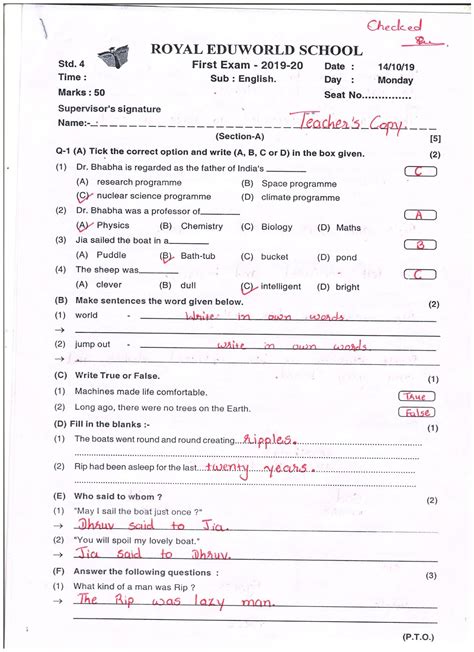 Checked
ROYAL EDUWORLD SCHOOL
Std. 4 First Exam - 2019-20 Date : 14/10/19
Time : Sub : English. Day : Monday
Marks : 50 Seat No...............
Supervisor's signature
Name:-.: Teacher's Copy.
(Section-A) [5]
Q-1 (A) Tick the correct option and write (A, B, C or D) in the box given. (2)
(1) Dr. Bhabha is regarded as the father of India's________ C
(A) research programme (B) Space programme
(C) nuclear science programme (D) climate programme
(2) Dr. Bhabha was a professor of________ A
(A) Physics (B) Chemistry (C) Biology (D) Maths
(3) Jia sailed the boat in a________ B
(A) Puddle (B) Bath-tub (C) bucket (D) pond
(4) The sheep was________ C
(A) clever (B) dull (C) intelligent (D) bright
(B) Make sentences the word given below. (2)
(1) world - Write in own words.
→
(2) jump out - write in own words.
→
(C) Write True or False. (1)
(1) Machines made life comfortable. True
(2) Long ago, there were no trees on the Earth. False
(D) Fill in the blanks :- (1)
(1 The boats went round and round creating...ripples.
(2) Rip had been asleep for the last...twenty years.
(E) Who said to whom ? (2)
(1) "May I sail the boat just once ?"
→ Dhruv said to Jia.
(2) "You will spoil my lovely boat."
→ Jia said to Dhruv.
(F) Answer the following questions : (3)
(1) What kind of a man was Rip ?
→ The Rip was lazy man.
(P.T.O.)